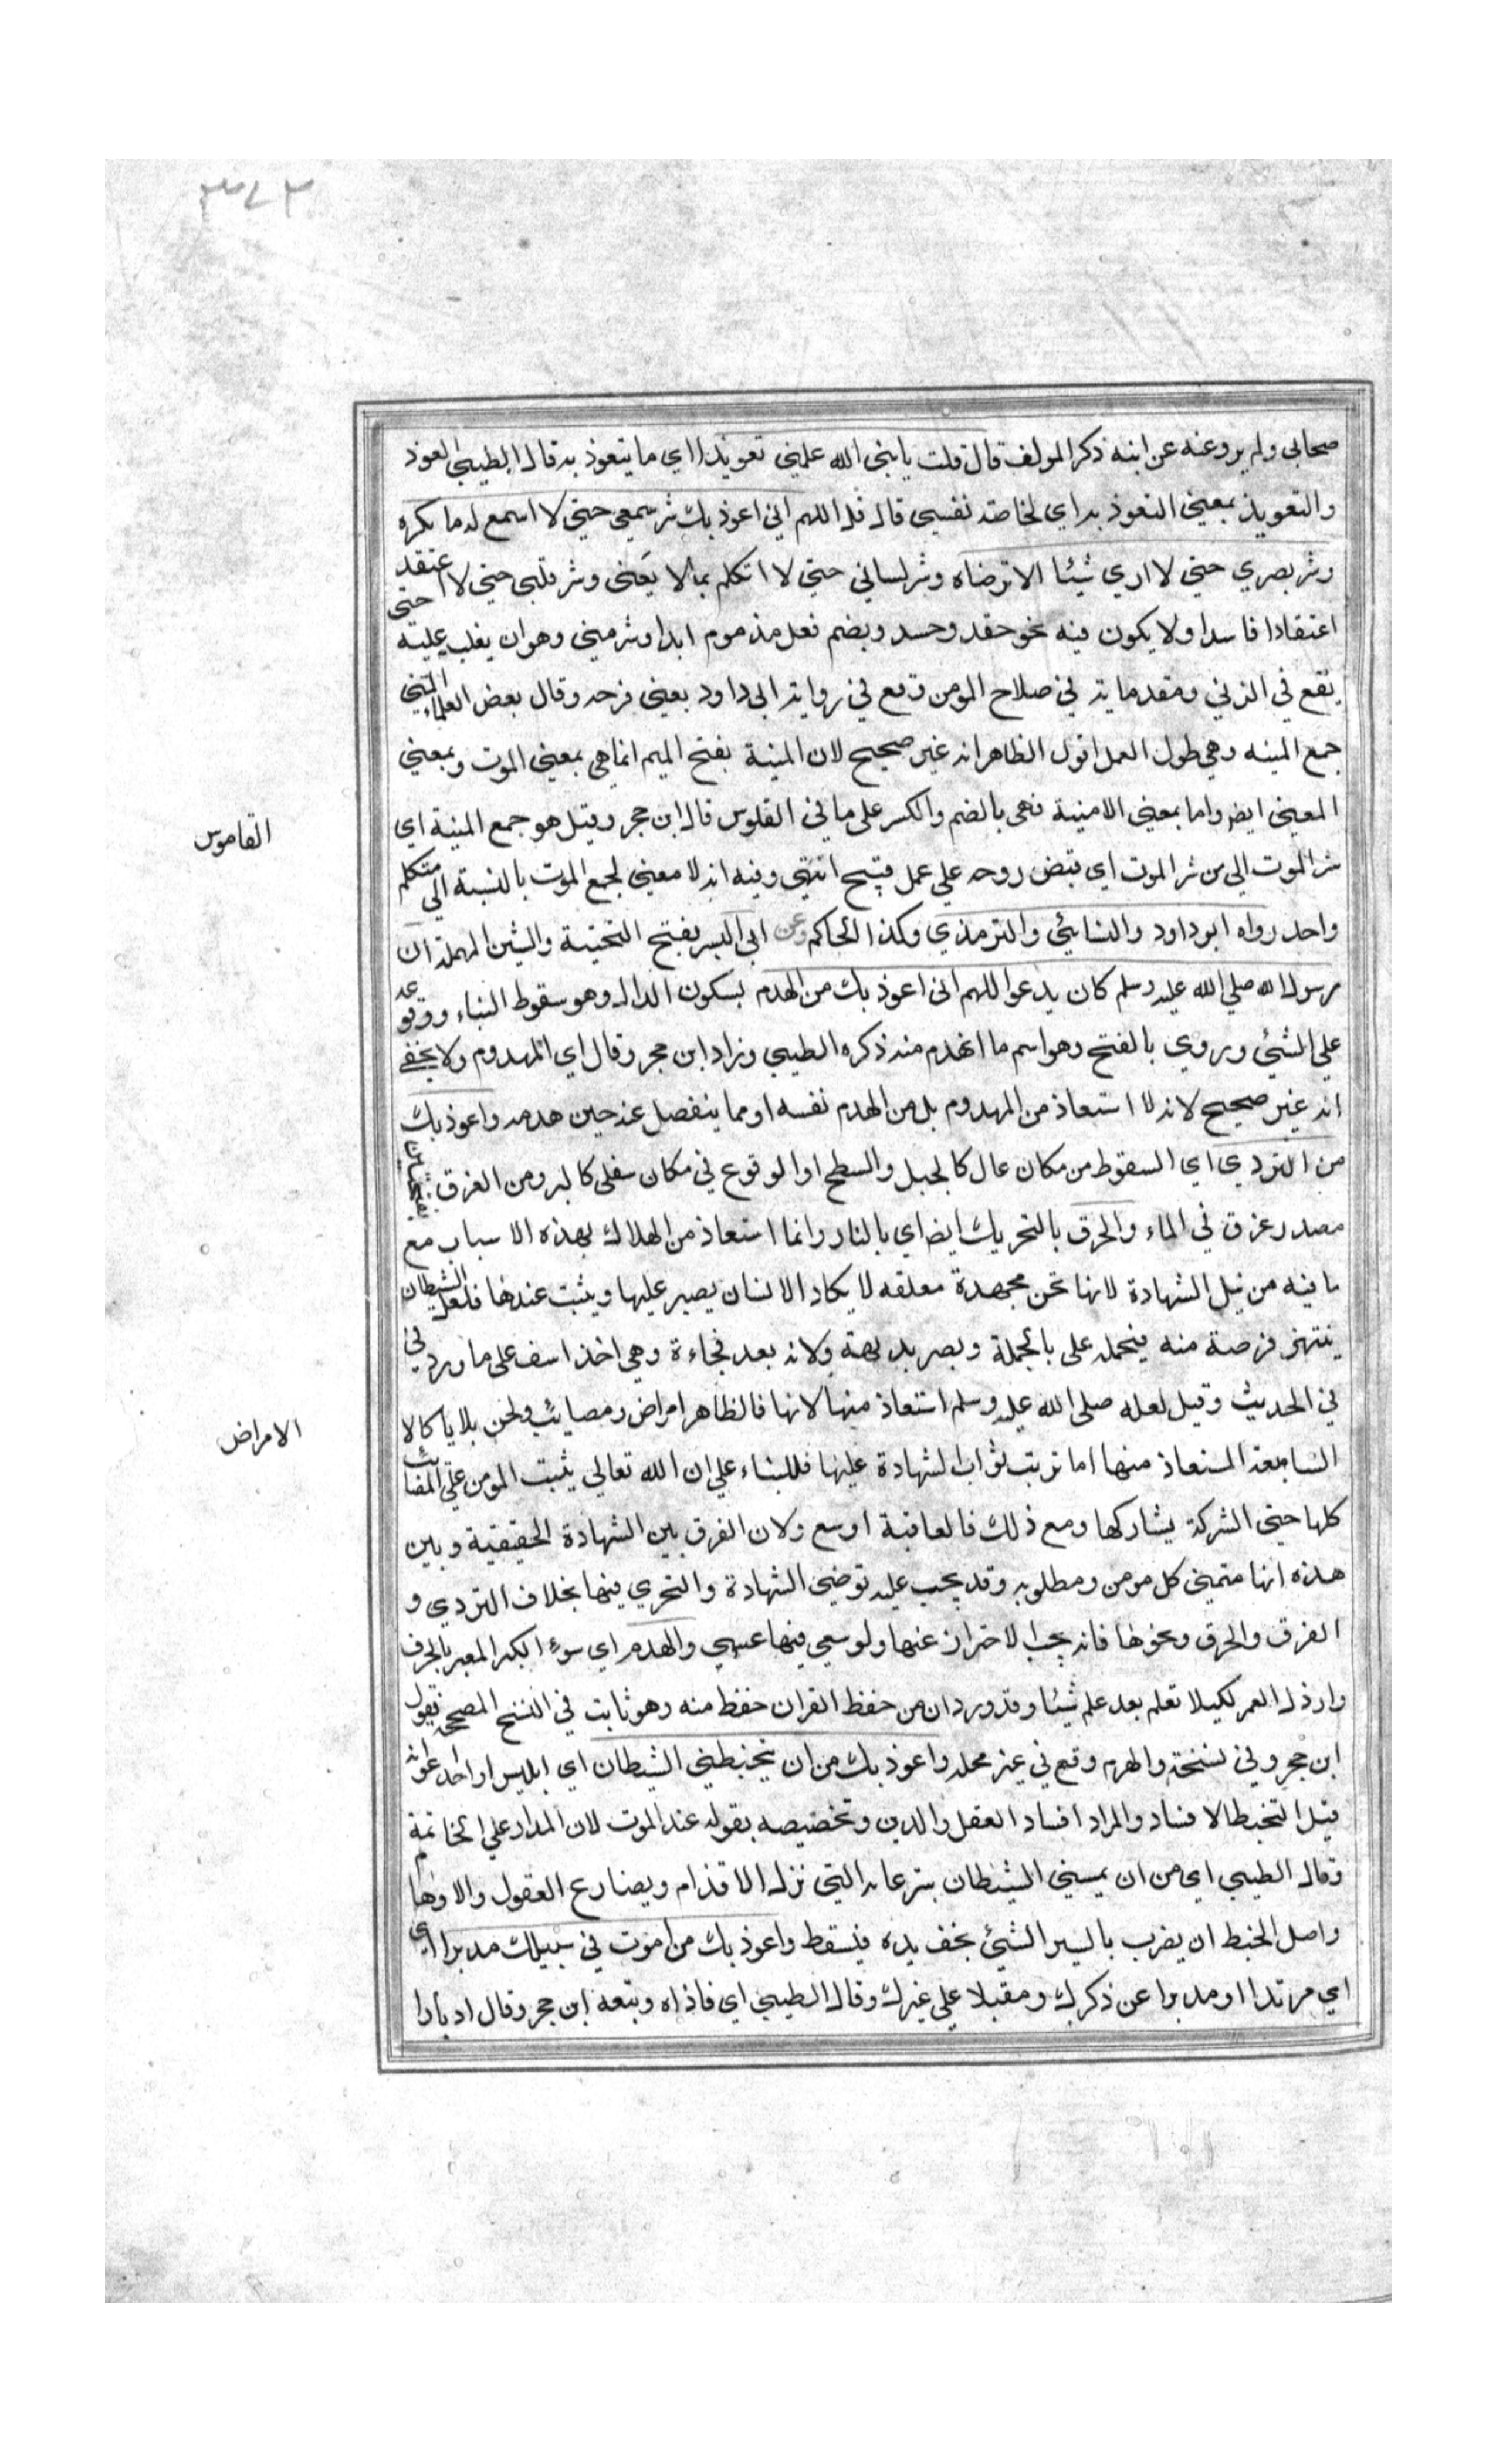 ٣٧٣
صحابي ولم يرو عنه عن ابنه ذكر المولف قال قلت يا نبي الله علمني تعويذا اي ما يتعوذ به قال الطيبي العوذ
والتعويذ بمعني التعوذ به اي لخاصة نفسي قال قل اللهم اني اعوذ بك شر سمعي حتي لا اسمع له ما يكره
وشر بصري حتي لا اري شيئا الا ترضاه وشر لساني حتي لا اتكلم بما لا يعني وشر قلبي حتي لا اعتقد
اعتقادا فاسدا ولا يكون فيه نحو حقد وحسد وبضم فعل مذموم ابدا وشر مني وهو ان يغلب عليه حتي
يقع في الزني ومقدماته في صلاح المومن وقع في رواية ابي داود يعني فرجه وقال بعض العلماء المني
جمع المنيه وهي طول العمل اقول الظاهر انه غير صحيح لان المنية بفتح الميم انما هي بمعني الموت وبمعني
المعني ايض واما بمعني الامنية فهي بالضم والكسر علي ما في القلوس قال ابن حجر وقيل هو جمع المنية اي
القاموس
شر الموت الي من شر الموت اي قبض روحه علي عمل قبيح انتهي وفيه انه لا معني لجمع الموت بالنسبة الي متكلم
واحد رواه ابو داود والنسائي والترمذي وكذا الحاكم وعن ابي اليسر بفتح التحتية والشين المهملة ان
رسول الله صلي الله عليه وسلم كان يدعوا اللهم اني اعوذ بك من الهدم بسكون الدال وهو سقوط البناء ووقوعه
علي الشئ وروي بالفتح وهو اسم ما انهدم منه ذكره الطيبي وزاد ابن حجر وقال اي المهدوم ولا يخفي
انه غير صحيح لانه لا استعاذ من المهدوم بل من الهدم نفسه او مما ينفصل عنه حين هدمه واعوذ بك
من التردي اي السقوط من مكان عال كالجبل والسطح او الوقوع في مكان سفلي كالبر ومن الغرق بفتحتين
مصدر غرق في الماء والحرق بالتحريك ايض اي بالنار وانما استعاذ من الهلاك بهذه الاسباب مع
ما فيه من نيل الشهادة لانها محن مجهدة مقلقه لا يكاد الانسان يصبر عليها ويثبت عندها فلعل الشيطان
ينتهز فرصة منه فيحمله علي بالجملة ويصر بدينه ولانه يعد فجاءة وهي اخذ اسف علي ما ورد في
في الحديث وقيل لعله صلي الله عليه وسلم استعاذ منها لانها فالظاهر امراض ومصايب ومحن بلايا كالا
الامراض
السابقة المستعاذ منها اما ترتب ثواب الشهادة عليها فللبناء علي ان الله تعالي يثبت المومن علي المصائب
كلها حتي الشركة يشاركها ومع ذلك فالعافية اوسع ولان الفرق بين الشهادة الحقيقية وبين
هذه انها متمني كل مومن ومطلوبه وقد يجب عليه توضي الشهادة والتحري فيها بخلاف التردي و
الغرق والحرق ونحوها فانه يجب الاحتراز عنها ولو سعي فيها عسي والهدم اي سوء الكبر المعبر بالحرف
وارذل العمر لكيلا تعلم بعد علم شيئا وقد ورد ان من حفظ القران حفظ منه وهو ثابت في النسخ المصححة فقول
ابن حجر وفي نسخة والهرم وقع في غير محله واعوذ بك من ان يتخبطني الشيطان اي ابليس او احد اعوانه
قيل التخبط الافساد والمراد افساد العقل والدين وتخصيصه بقوله عند الموت لان المدار علي الخاتمة
وقال الطيبي اي من ان يمسني الشيطان بنزغاته التي تزل الاقدام ويصارع العقول والاوهام
واصل الخبط ان يضرب بالسير الشئ بخف يده فيسقط واعوذ بك من اموت في سبيلك مدبرا اي
اي مرتدا او مدبرا عن ذكرك ومقبلا علي غيرك وقال الطيبي اي فاذاه وتبعه ابن حجر وقال ادبارا